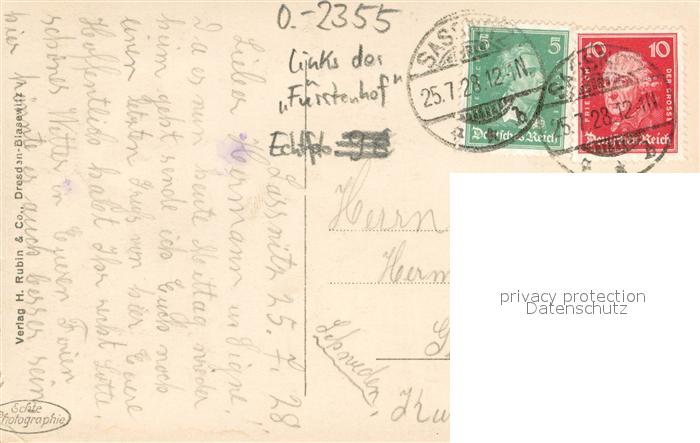 O.-2355
Links der
„Fürstenhof"
Echtfoto
Sassnitz 25. 7. 28
Lieber Hermann u Signe!
Da es nun heute Mittag wieder
heim geht sende ich Euch noch
einen letzten Gruß von hier. Eure
Hoffentlich habt Ihr recht Lotte.
schönes Wetter in Euren Ferien
hier könnte es auch besser sein
Verlag H. Rubin & Co., Dresden-Blasewitz
Echte
Photographie
SASSNITZ
25.7.28.12-1N
5 5
Deutsches Reich
25.7.28.12-1N
10 10
DER GROSSE
Deutsches Reich
Herrn
Herm
Schweden
privacy protection
Datenschutz